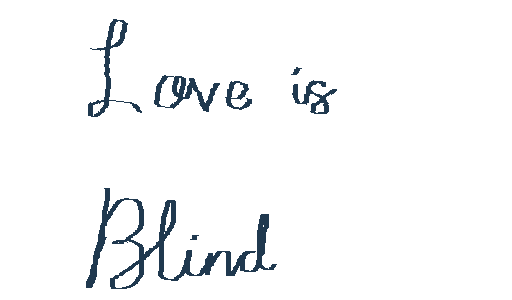 Love is
Blind